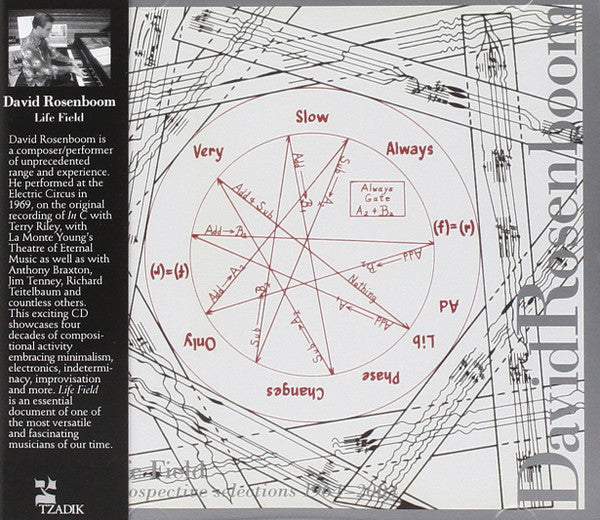 David Rosenboom
Life Field
David Rosenboom is
a composer/performer
of unprecedented
range and experience.
He performed at the
Electric Circus in
1969, on the original
recording of In C with
Terry Riley, with
La Monte Young's
Theatre of Eternal
Music as well as with
Anthony Braxton,
Jim Tenney, Richard
Teitelbaum and
countless others.
This exciting CD
showcases four
decades of composi-
tional activity
embracing minimalism,
electronics, indetermi-
nacy, improvisation
and more. Life Field
is an essential
document of one of
the most versatile
and fascinating
musicians of our time.
TZADIK
Slow
Very
Always
Add
Sub
B₁
A₂
Always
Gate
A₂ + B₂
Add & Sub
(f)=(r)
Add→B₂
Add
B₂
(f)=(r)
Nothing
Add→A₂
Sub
B₂
A₁
Add
Ad
Lib
Only
Sub
A₁
Phase
Changes
Field
ospective selections
David Rosenboom